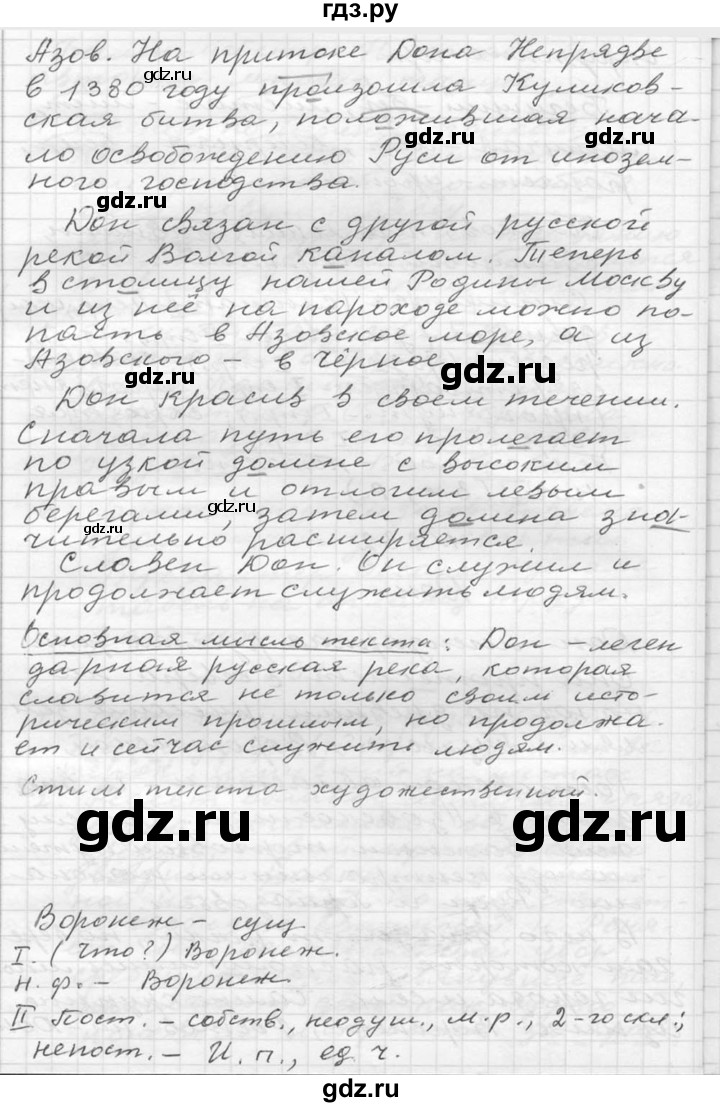 гдз.ру
Азов. На притоке Дона Непрядве
в 1380 году произошла Куликов-
gdz.ru gdz.ru
ская битва, положившая нача-
ло освобождению Руси от инозем-
gdz.ru gdz.ru
ного господства.
Дон связан с другой русской
gdz.ru gdz.ru
рекой Волгой каналом. Теперь
в столицу нашей Родины Москву
и из неё на пароходе можно по-
пасть в Азовское море, а из
Азовского – в Чёрное.
gdz.ru gdz.ru
Дон красив в своём течении.
Сначала путь его пролегает
по узкой долине с высоким
правым и отлогим левым
gdz.ru gdz.ru
берегами, затем долина зна-
чительно расширяется.
Славен Дон. Он служил и
gdz.ru gdz.ru
продолжает служить людям.
Основная мысль текста: Дон – леген
дарная русская река, которая
gdz.ru gdz.ru
славится не только своим исто-
рическим прошлым, но продолжа-
ет и сейчас служить людям.
Стиль текста художественный.
gdz.ru gdz.ru
Воронеж – сущ
gdz.ru gdz.ru
I. (Что?) Воронеж.
Н. ф. – Воронеж
II Пост. – собств., неодуш., м. р., 2-го скл.;
gdz.ru gdz.ru
непост. – И. п., ед ч.
gdz.ru